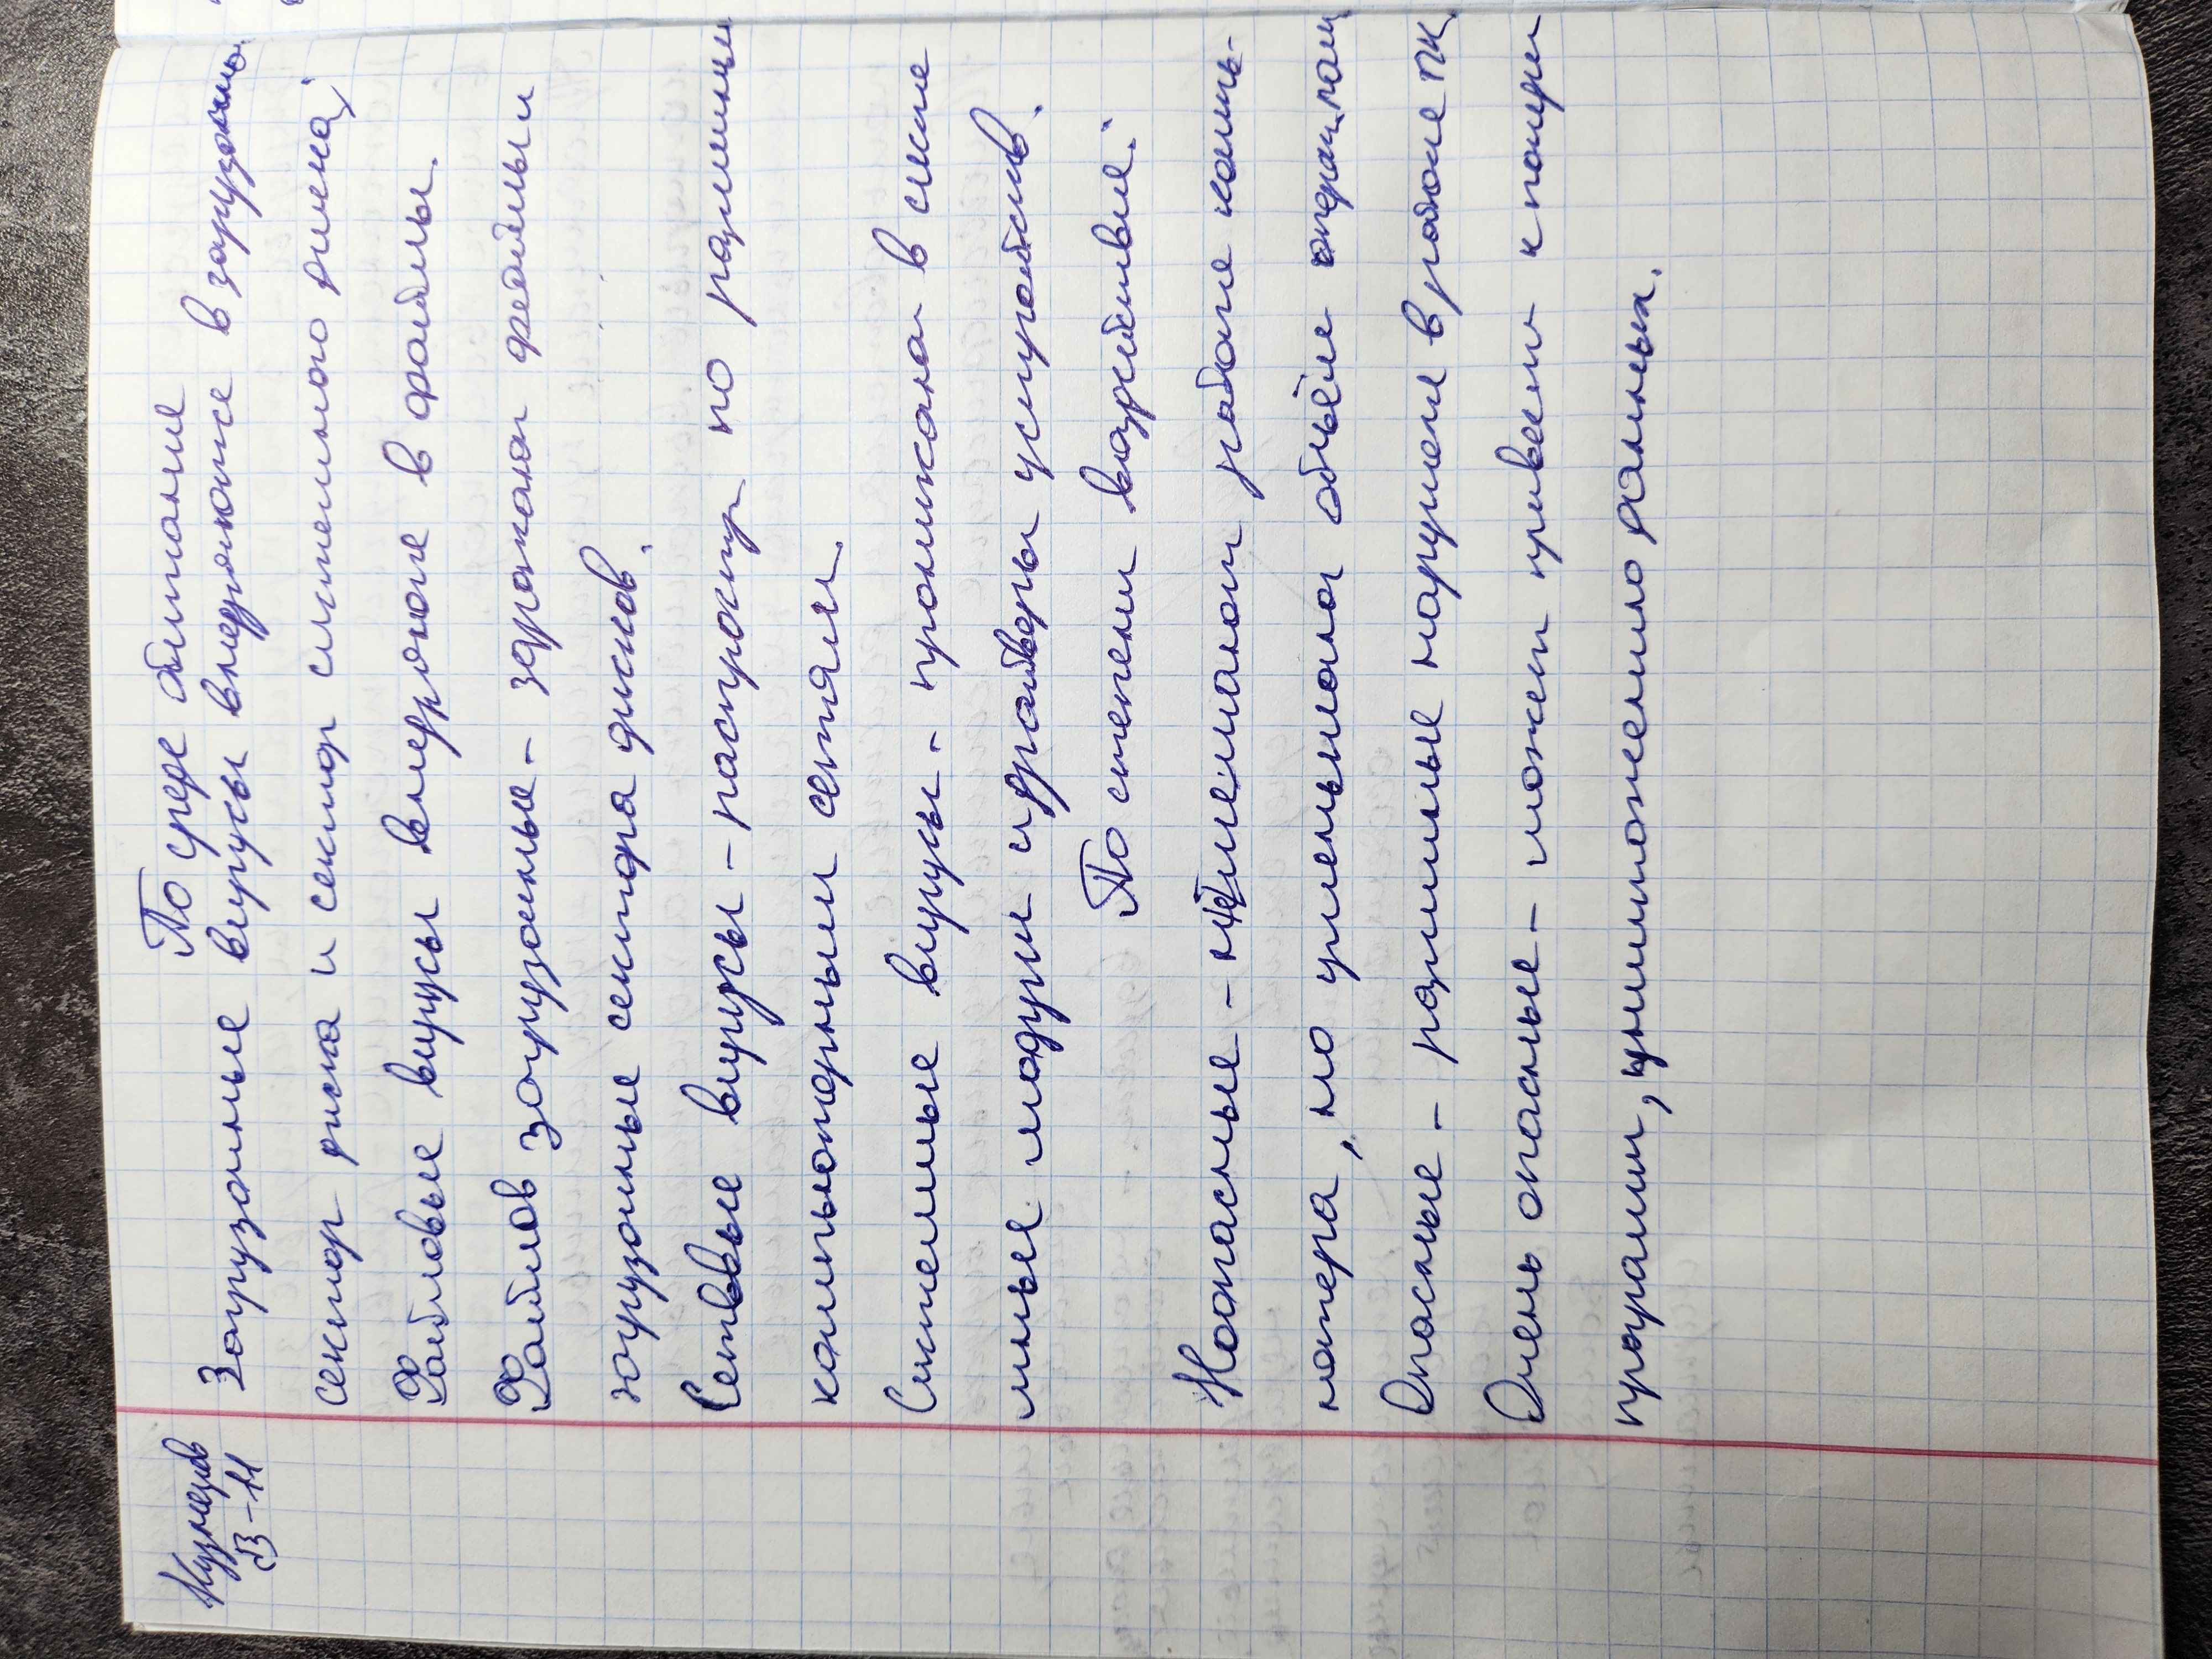 Кузнецов
В-11
По среде обитание
Загрузочные вирусы внедряюже в загрузочно
сектор диска и сектор системного диска;
Файловые вирусы внедряюже в файлы.
Файлов загрузочные - заражают файлы и
загрузочные сектора дисков.
Сетевые вирусы - распростр по различны
компьютерным сетям.
Системные вирусы - проникают в систе
мные модули и драйверы устройств.
По степени воздействие:
Неопасные - не мешают работе компь-
ютера, но уменьшают объём операц пам
Опасные - различные нарушен в работе ПК
Очень опасные - может привести к потери
программ, уничтожению данных.